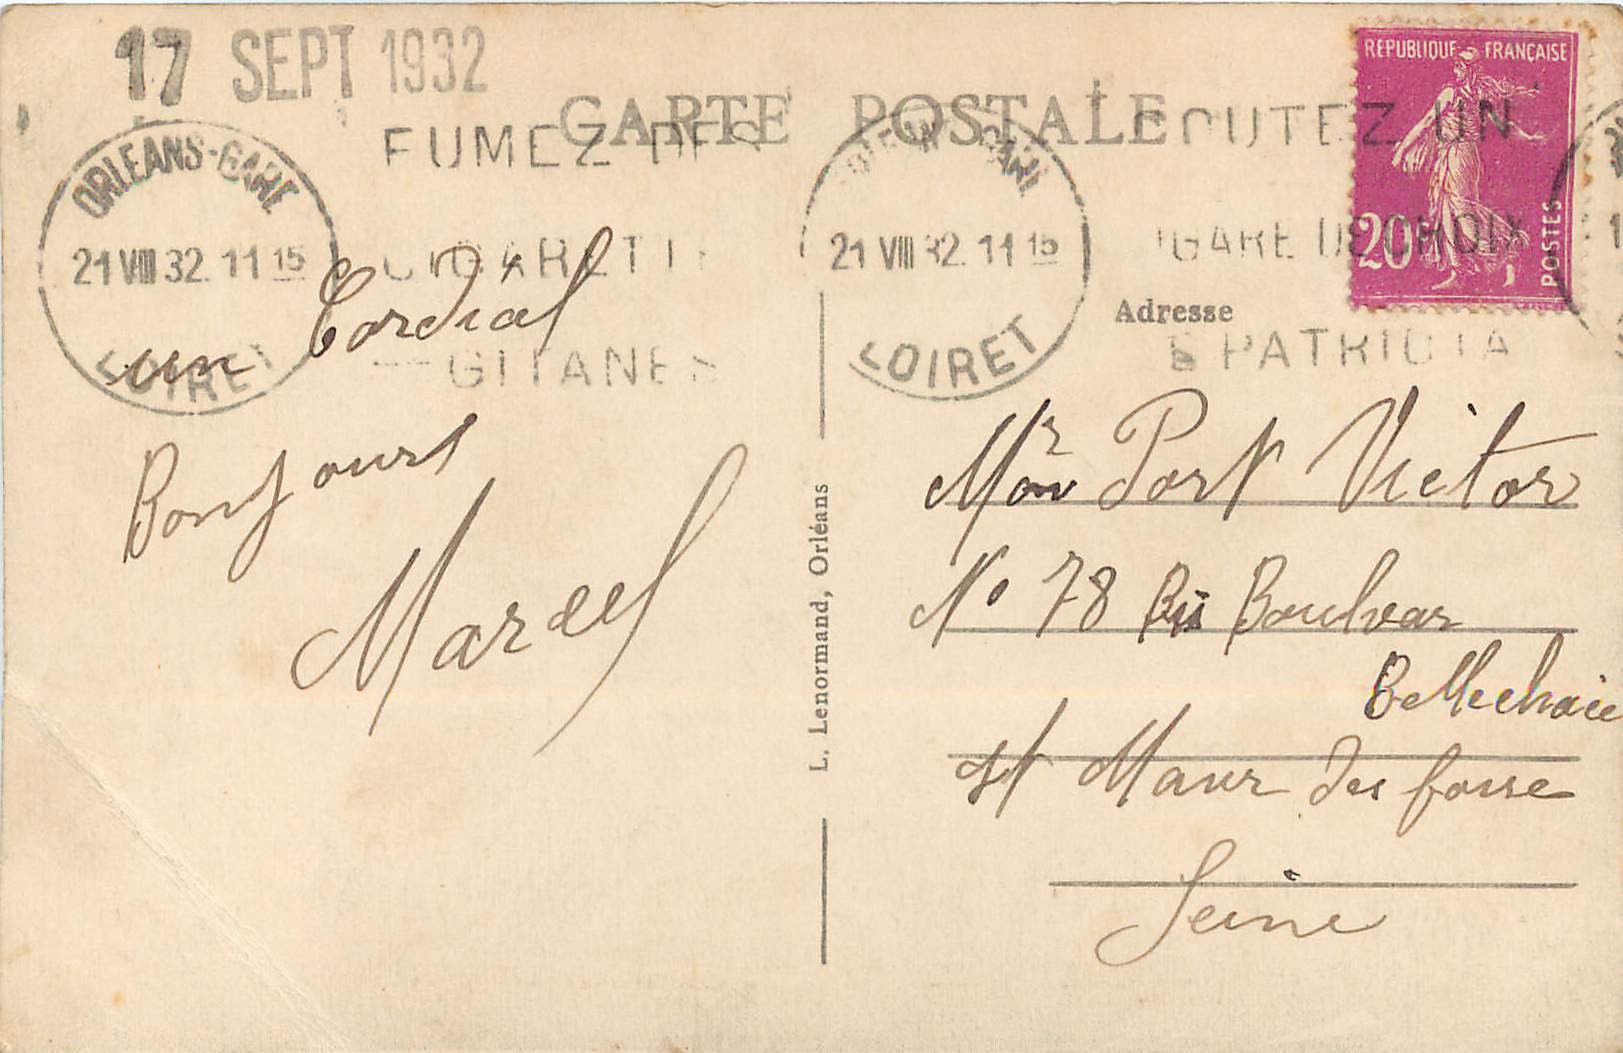 17 SEPT 1932
CARTE POSTALE
RÉPUBLIQUE FRANÇAISE
20c
POSTES
ORLEANS-GARE
21 VIII 32 11 15
LOIRET
FUMEZ DES
CIGARETTES
GITANES
ORLEANS-GARE
21 VIII 32 11 15
LOIRET
GOUTEZ UN
CIGARE DE CHOIX
PATRIOTA
un Cordial
Bonjours
Marcel
L. Lenormand, Orléans
Adresse
Mr Port Victor
No 78 Bis Boulvar
Bellechaie
St Maur des fosse
Seine